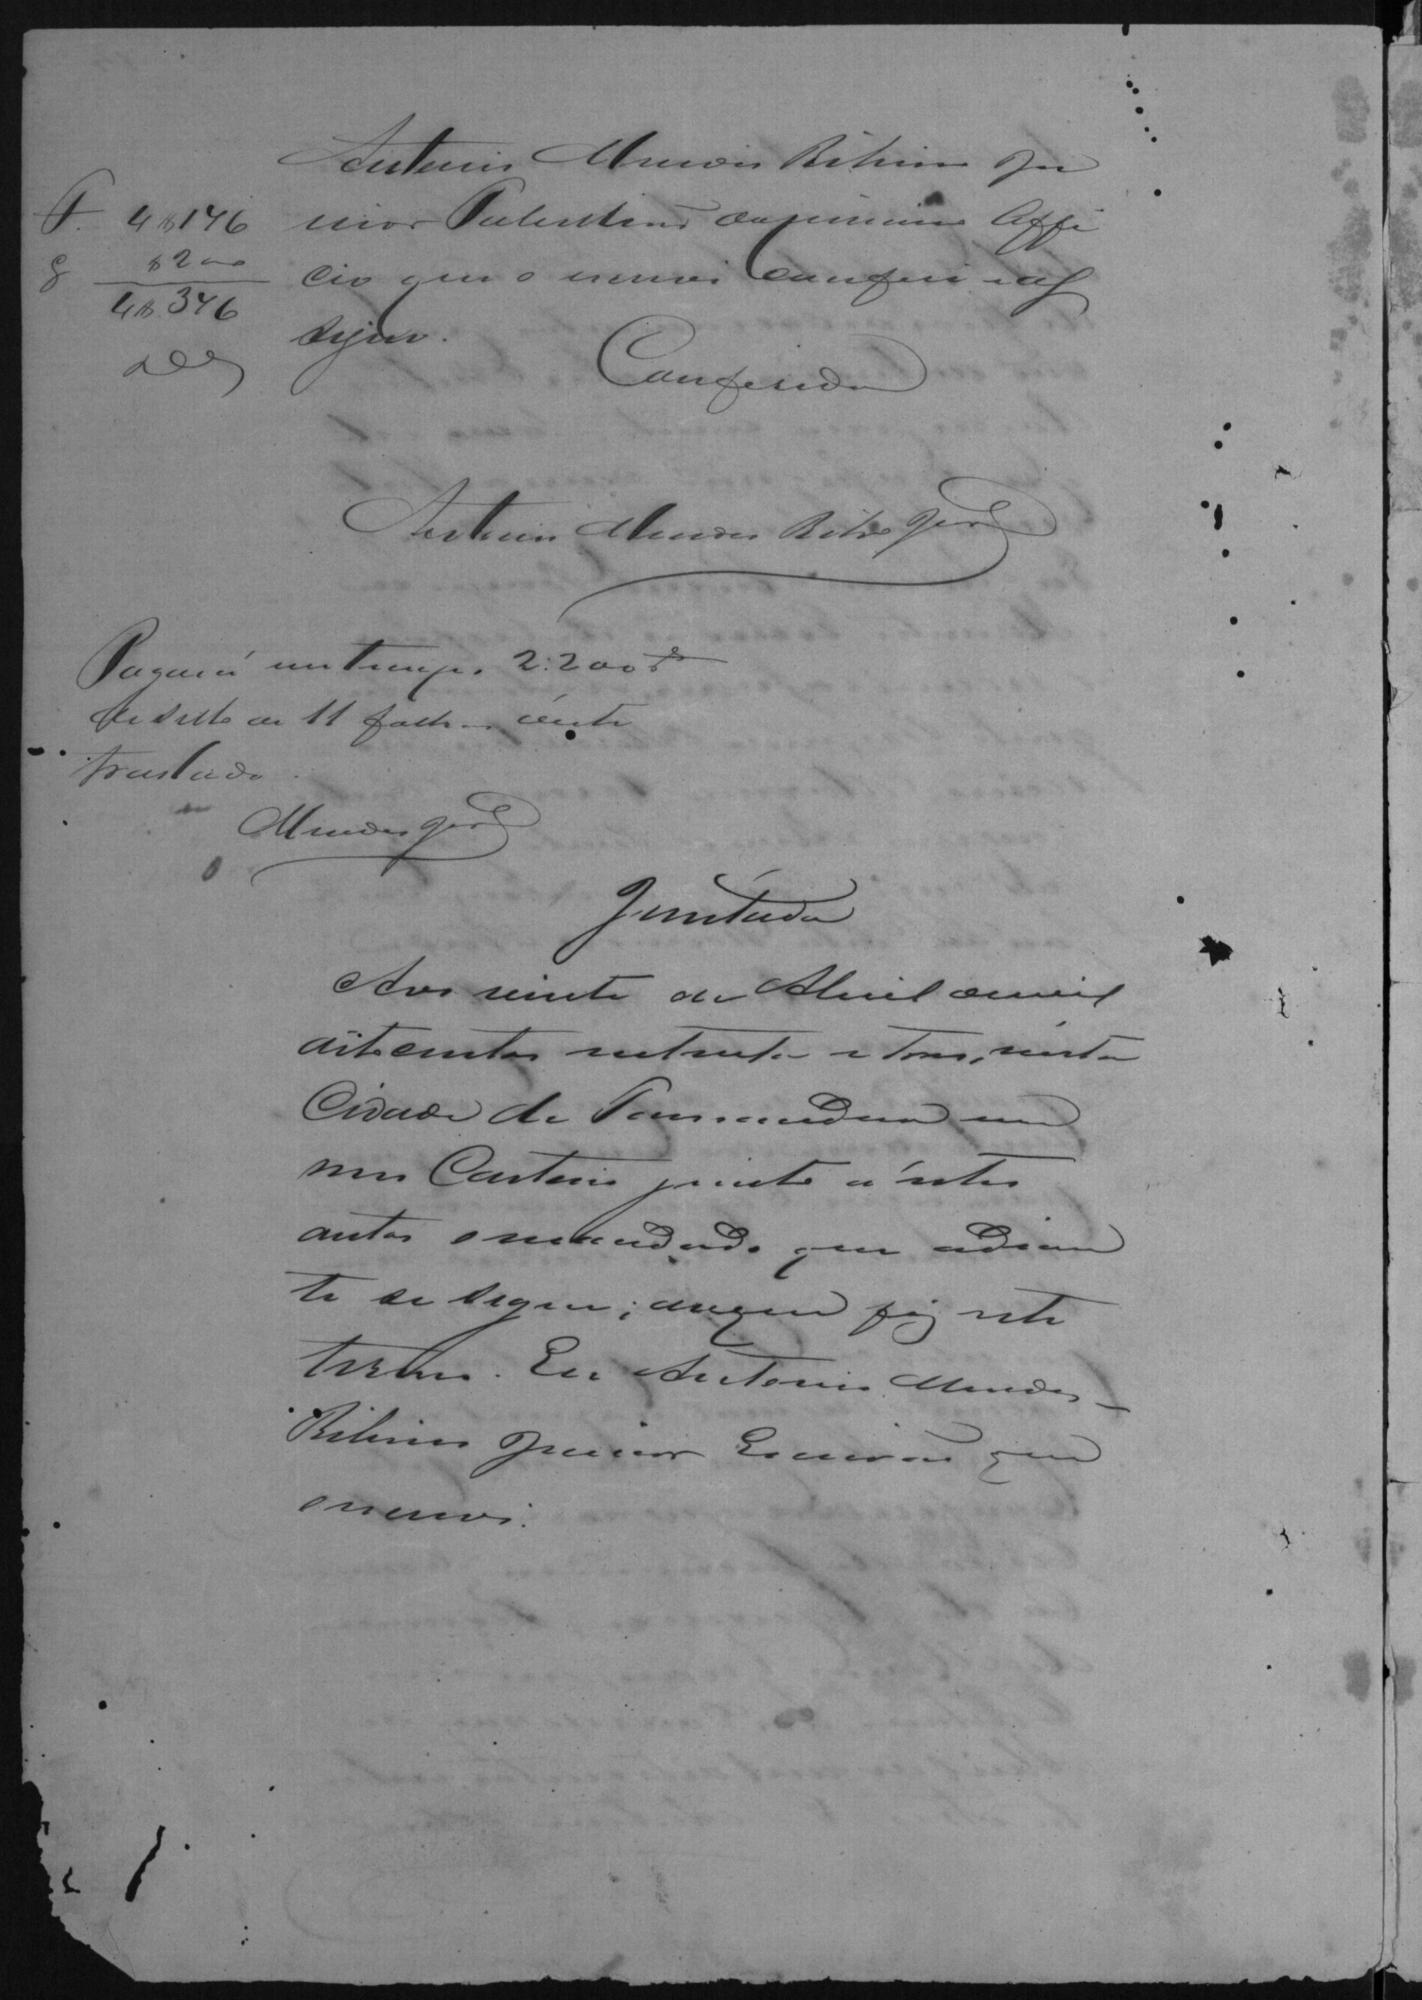 Antonio Mendes Ribeiro Ju
nior Tabellião do primeiro Offi
cio que o escrevi conferi e as
signo.
Conferida
T. 4$146
$200
4$346
Antonio Mendes Ribro Jor
Pagará em tempo 2:200 rs
de sello de 11 folhas deste
traslado.
Mendes Jor
Juntada
Aos vinte de Abril de mil
oitocentos setenta e tres, nesta
Cidade de em
meu Cartorio junto a estes
autos o mandado que adian
te se segue; do que fiz este
termo. Eu Antonio Mendes
Ribeiro Junior Escrivão que
o escrevi.